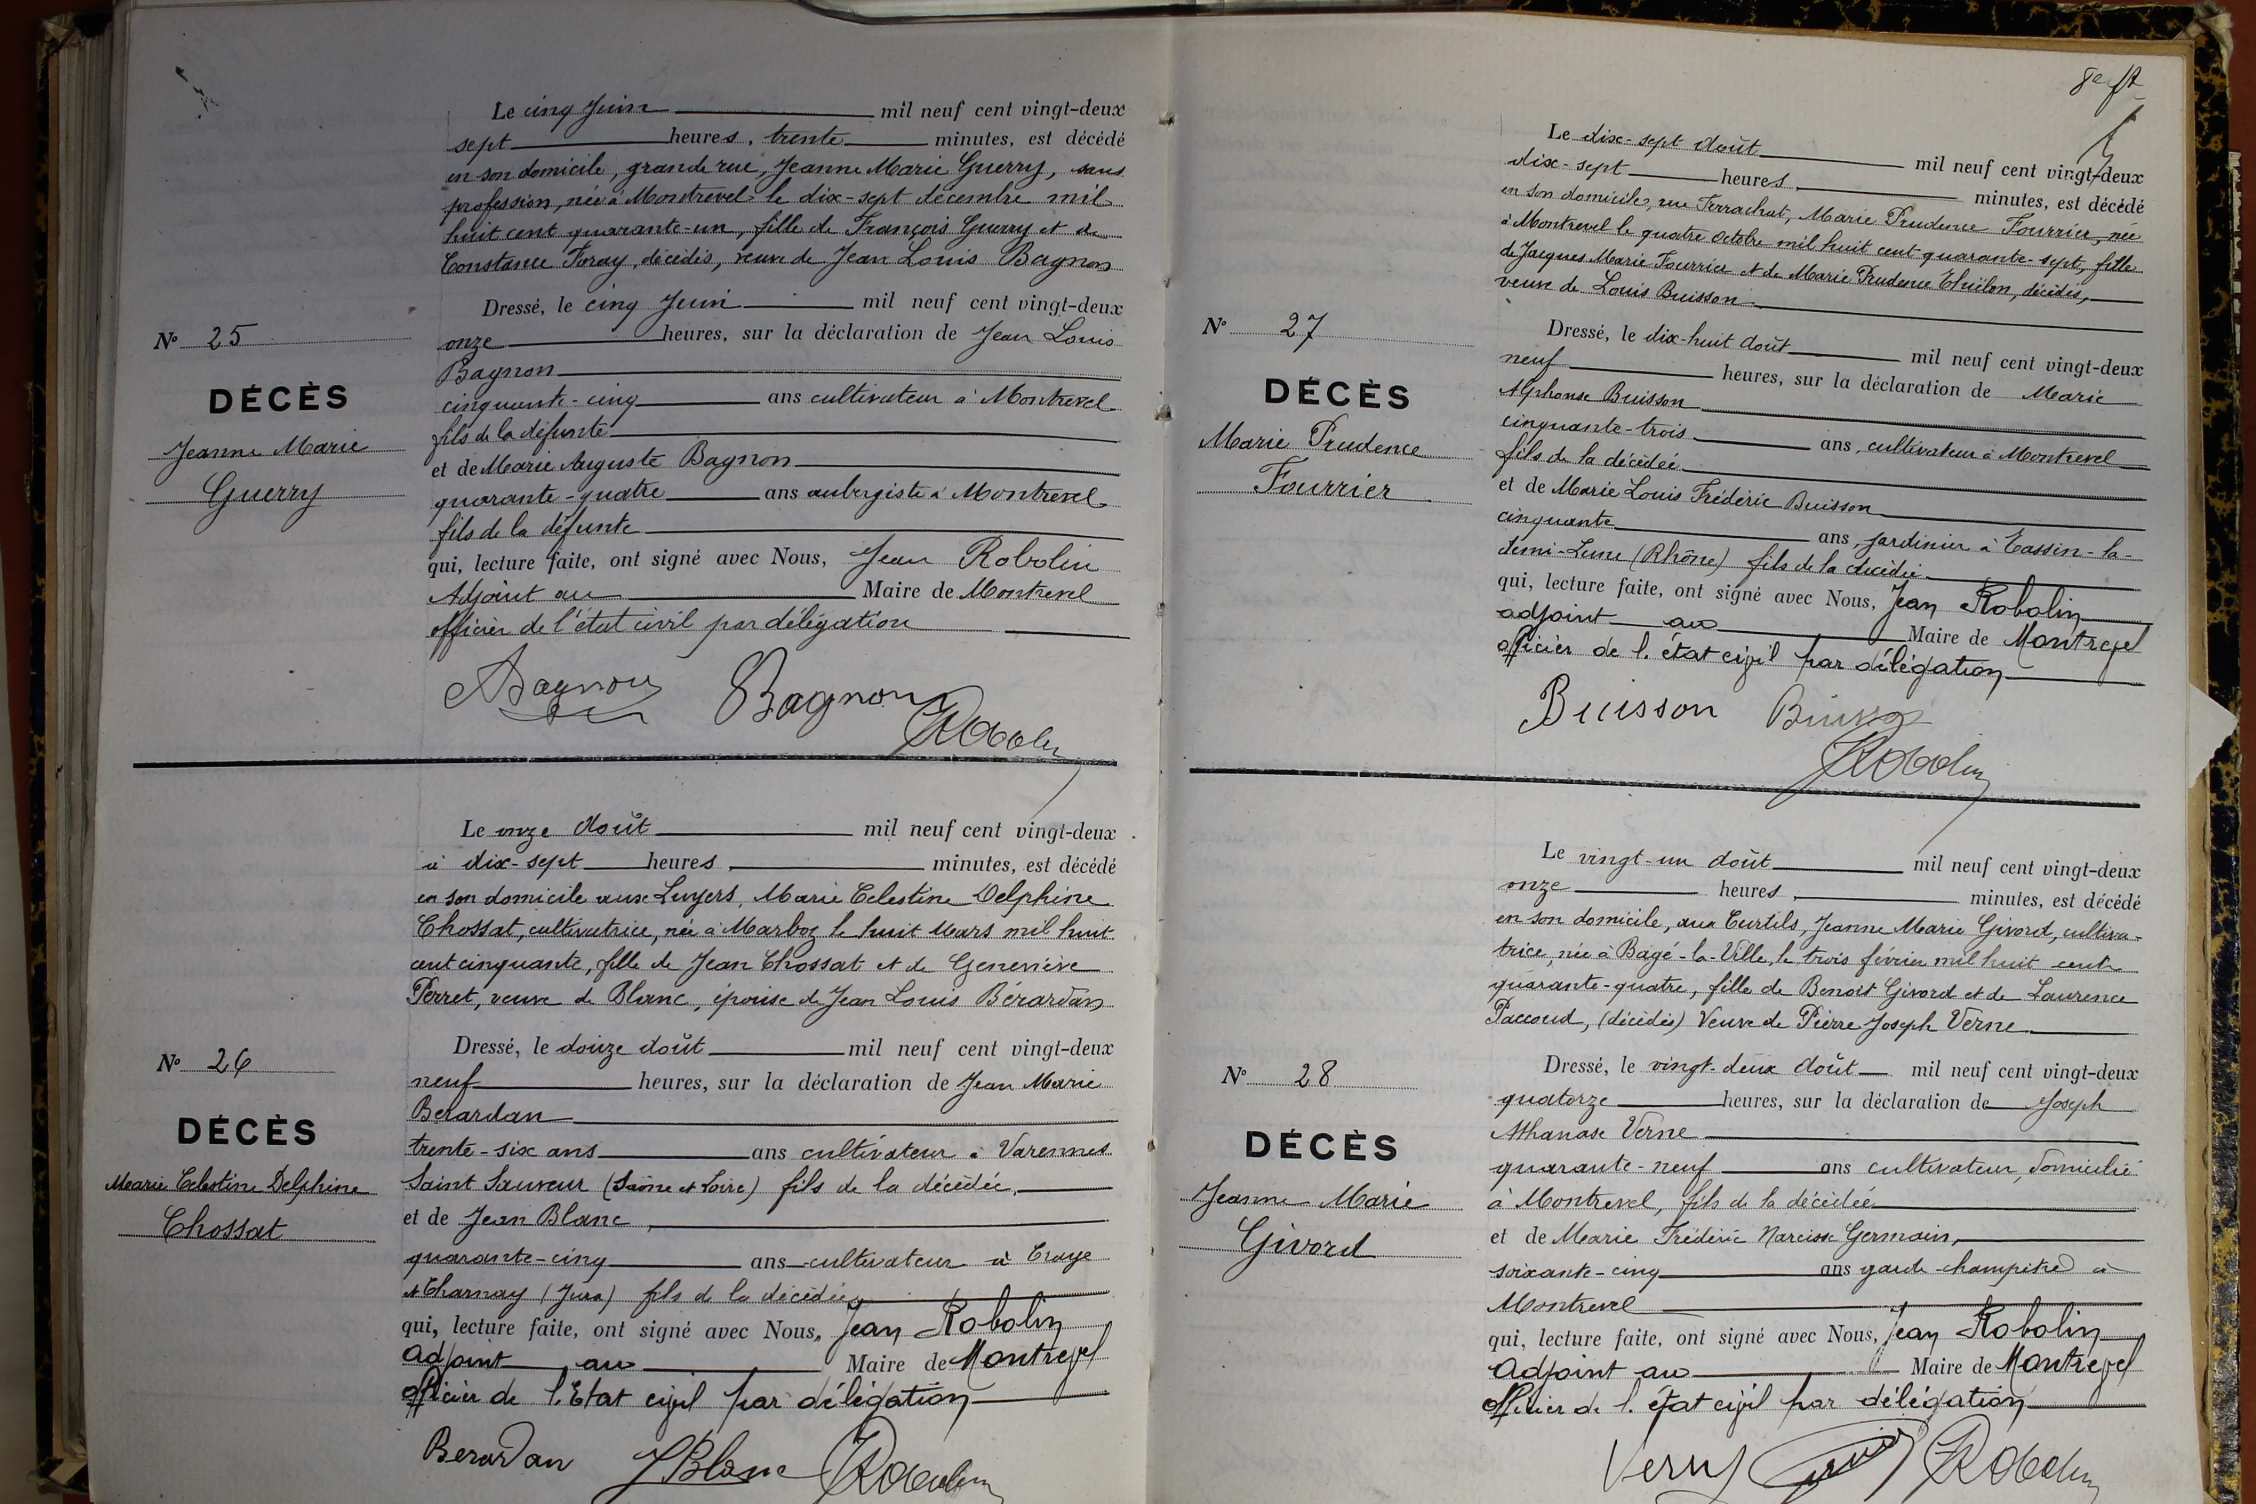 Le cinq Juin mil neuf cent vingt-deux
sept heures, trente minutes, est décédé
en son domicile, grande rue, Jeanne Marie Guerry, sans
profession, née à Montrevel le dix-sept décembre mil
huit cent quarante-un, fille de François Guerry et de
Constance Foray, décédés, veuve de Jean Louis Bagnon
Dressé, le cinq Juin mil neuf cent vingt-deux
onze heures, sur la déclaration de Jean Louis
Bagnon
cinquante-cinq ans cultivateur à Montrevel
fils de la défunte
et de Marie Auguste Bagnon
quarante-quatre ans aubergiste à Montrevel
fils de la défunte
qui, lecture faite, ont signé avec Nous, Jean Robolin
Adjoint au Maire de Montrevel
officier de l'état civil par délégation
Bagnon Bagnon
JRobolin
N° 25
DÉCÈS
Jeanne Marie
Guerry
Le onze Août mil neuf cent vingt-deux
à dix-sept heures, minutes, est décédé
en son domicile aux Luyers, Marie Celestine Delphine
Chossat, cultivatrice, née à Marboz le huit Mars mil huit
cent cinquante, fille de Jean Chossat et de Geneviève
Perret, veuve de Blanc, épouse de Jean Louis Bérardan
Dressé, le douze Août mil neuf cent vingt-deux
neuf heures, sur la déclaration de Jean Marie
Berardan
trente-six ans ans cultivateur à Varennes
Saint Sauveur (Saône et Loire) fils de la décédée,
et de Jean Blanc,
quarante-cinq ans cultivateur à
et Charnay (Jura) fils de la décédée,
qui, lecture faite, ont signé avec Nous, Jean Robolin
adjoint au Maire de Montrevel
officier de l'Etat civil par délégation
Berardan JBlanc JRobolin
N° 26
DÉCÈS
Marie Celestine Delphine
Chossat
Le dix-sept Août mil neuf cent vingt-deux
dix-sept heures, minutes, est décédé
en son domicile, rue Terrachat, Marie Prudence Fourrier, née
à Montrevel le quatre Octobre mil huit cent quarante-sept, fille
de Jacques Marie Fourrier et de Marie Prudence décédés,
veuve de Louis Buisson
Dressé, le dix-huit Août mil neuf cent vingt-deux
neuf heures, sur la déclaration de Marie
Alphonse Buisson
cinquante-trois ans, cultivateur à Montrevel
fils de la décédée
et de Marie Louis Frédéric Buisson
cinquante ans, jardinier à Tassin-la-
demi-Lune (Rhône) fils de la décédée
qui, lecture faite, ont signé avec Nous, Jean Robolin
adjoint au Maire de Montrevel
officier de l'état civil par délégation
Buisson Buisson
JRobolin
N° 27
DÉCÈS
Marie Prudence
Fourrier
Le vingt-un Août mil neuf cent vingt-deux
onze heures, minutes, est décédé
en son domicile, aux Curtils, Jeanne Marie Givord, cultiva-
trice, née à Bagé-la-Ville, le trois février mil huit cent
quarante-quatre, fille de Benoît Givord et de Laurence
Paccoud, (décédés) Veuve de Pierre Joseph Verne
Dressé, le vingt-deux Août mil neuf cent vingt-deux
quatorze heures, sur la déclaration de Joseph
Athanase Verne
quarante-neuf ans cultivateur, domicilié
à Montrevel, fils de la décédée
et de Marie Frédéric Narcisse Germain,
soixante-cinq ans garde champêtre à
Montrevel
qui, lecture faite, ont signé avec Nous, Jean Robolin
adjoint au Maire de Montrevel
officier de l'état civil par délégation
JRobolin
N° 28
DÉCÈS
Jeanne Marie
Givord